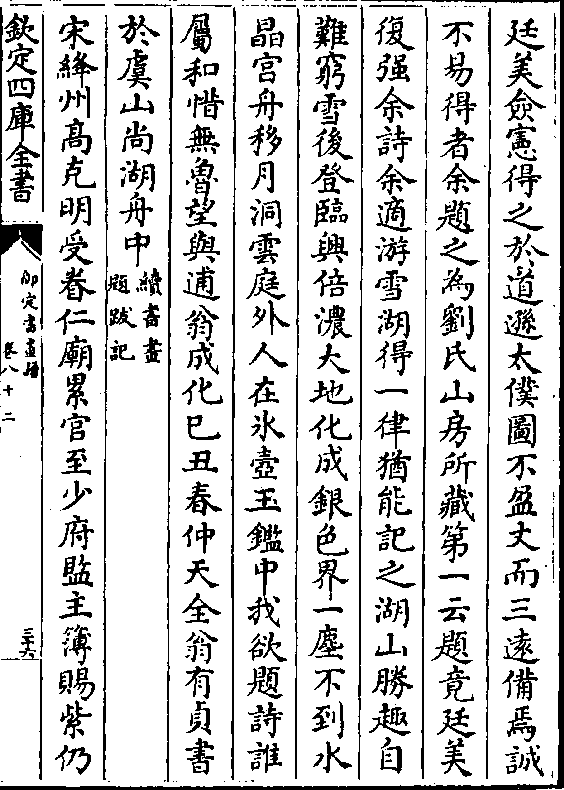 廷美僉憲得之於道遜太僕圖不盈丈而三遠備焉誠
不易得者余題之為劉氏山房所藏第一云題竟廷美
復强余詩余適游雪湖得一律猶能記之湖山勝趣自
難窮雪後登臨興倍濃大地化成銀色界一塵不到水
晶宮舟移月洞雲庭外人在氷壺玉鑑中我欲題詩誰
屬和惜無魯望與逋翁成化已丑春仲天全翁有貞書
於虞山尚湖舟中
續書畫
題跋記
宋絳州高克明受眷仁廟累官至少府監主簿賜紫仍
欽定四庫全書
御定書畫譜
卷八十二
三十六